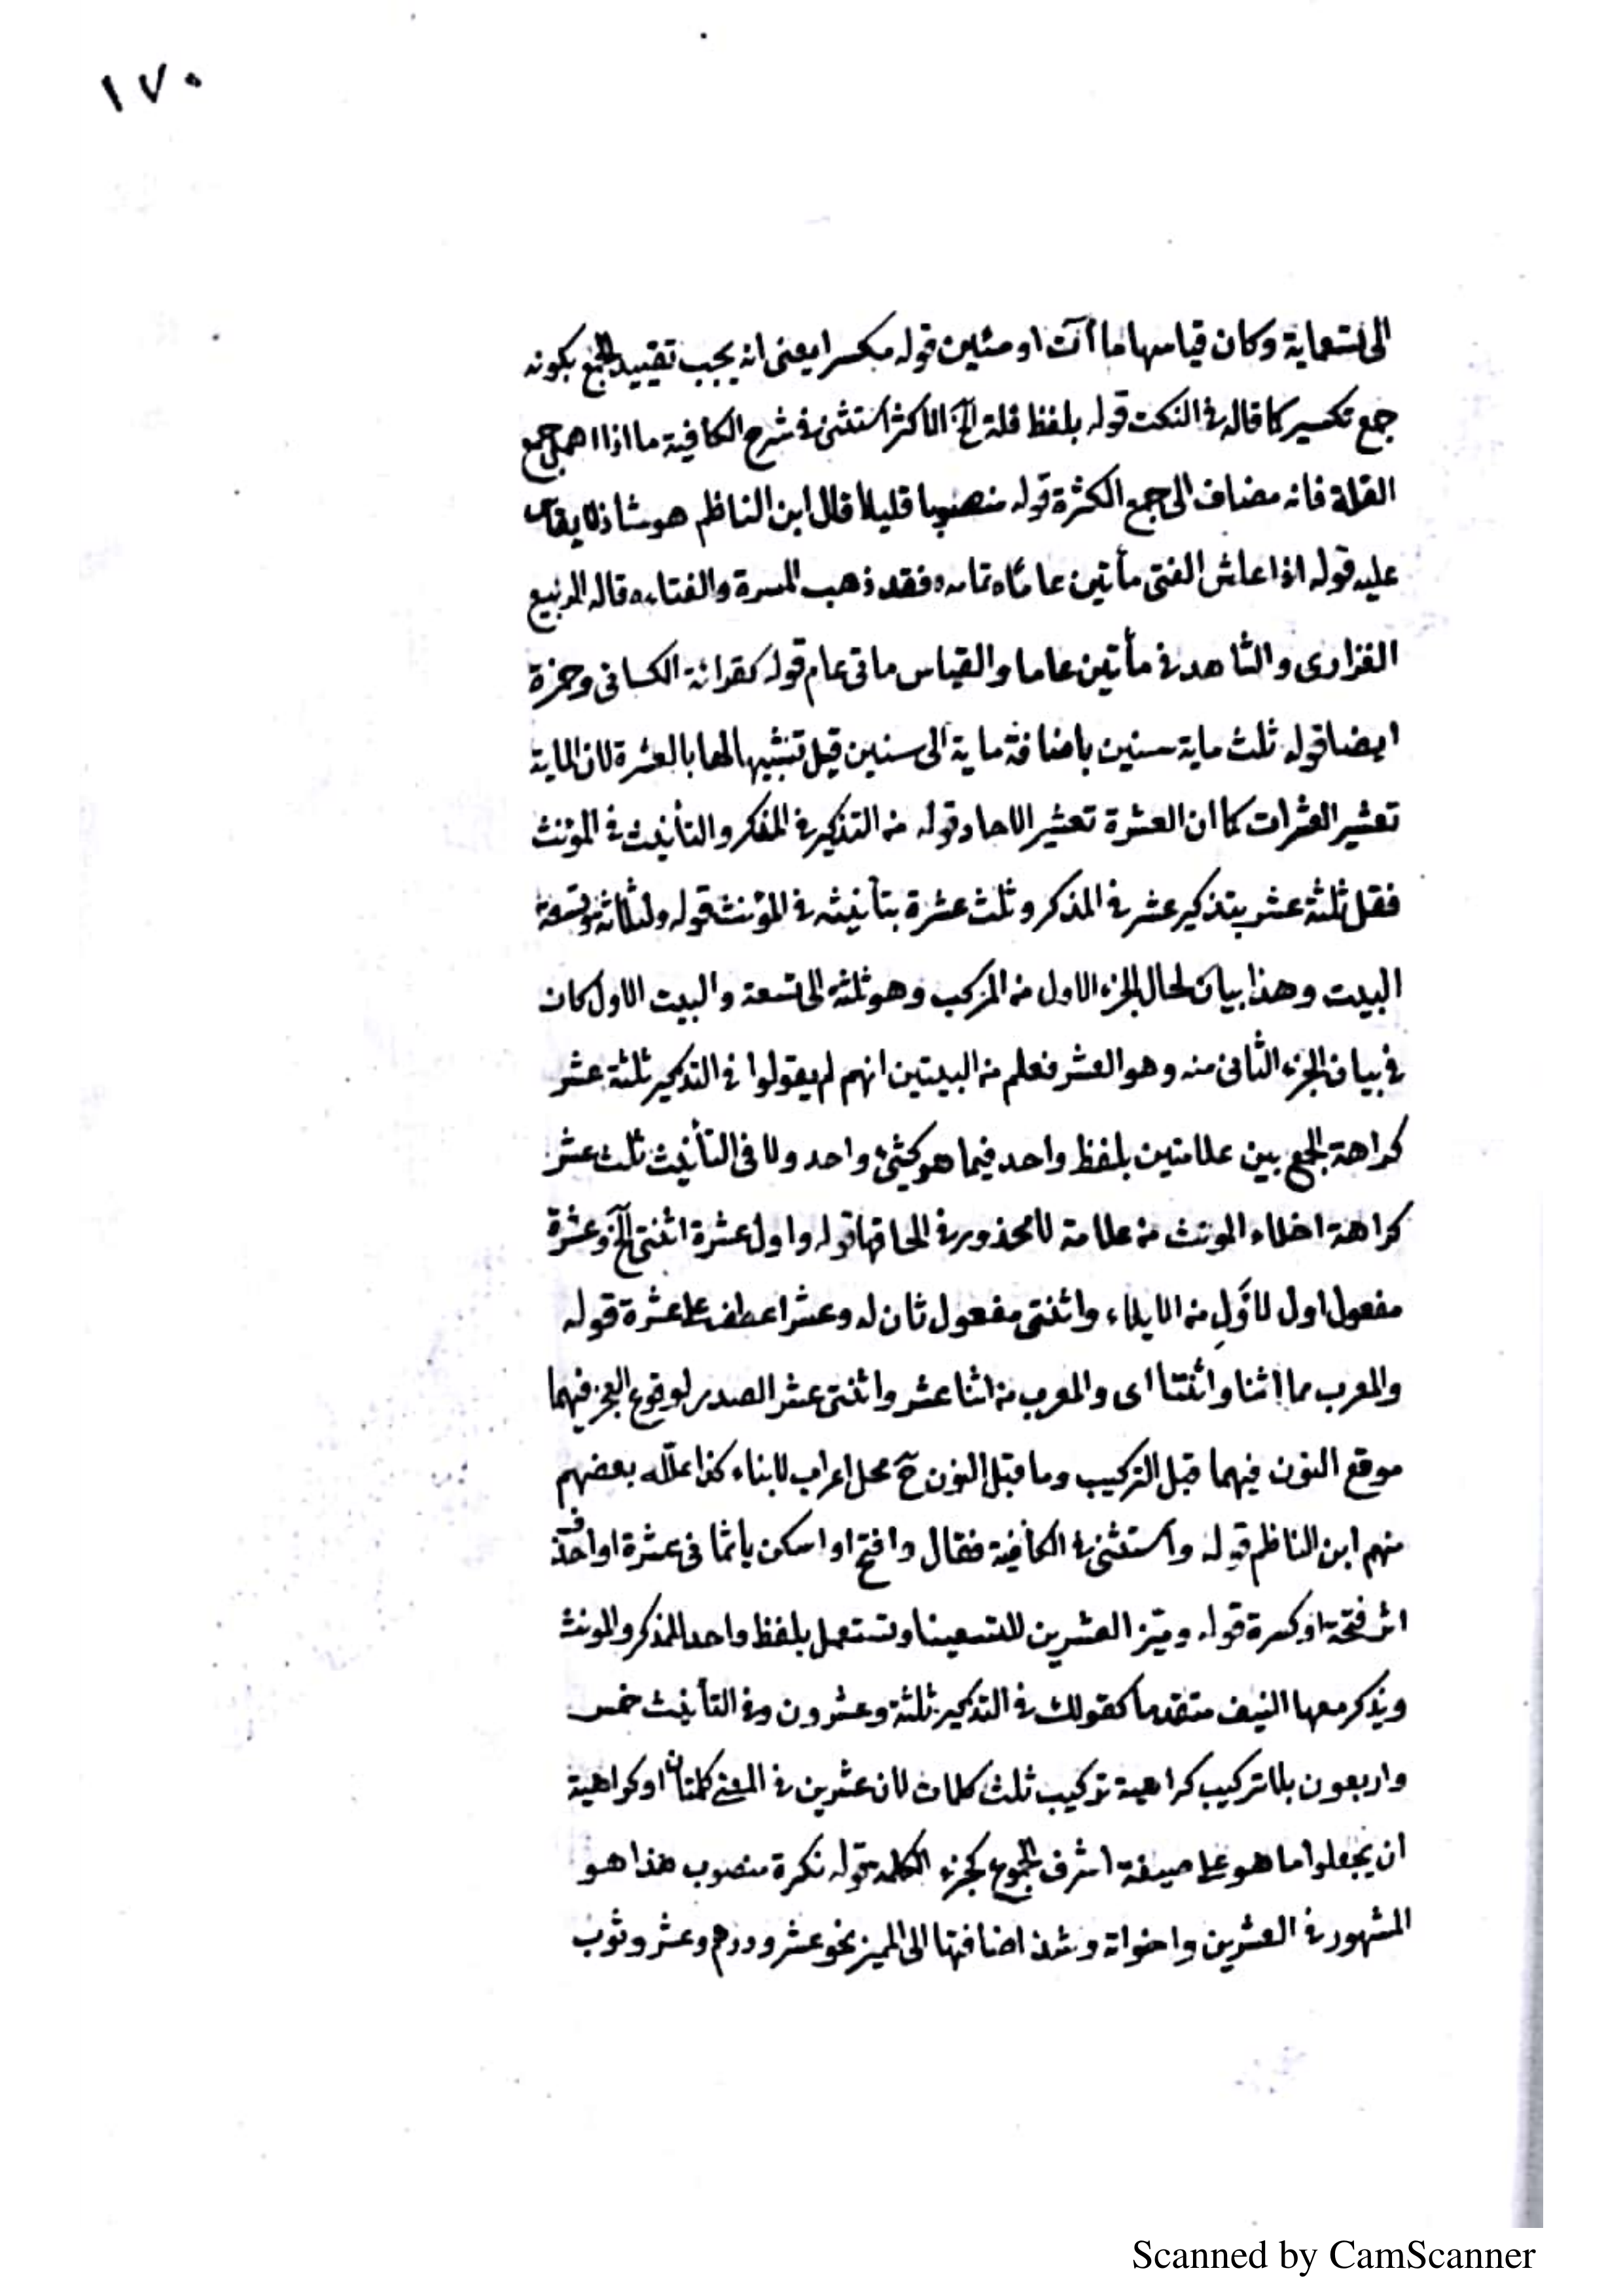 ١٧٠
الى تسعماية وكان قياسها مأآت او مئين قوله مكسرا يعنى انه يجب تقييد الجمع بكونه
جمع تكسير كما قاله فى النكت قوله بلفظ قلة الخ الاكثر استثنى فى شرح الكافية ما اذا اهمل جمع
القلة فانه مضاف الى جمع الكثرة قوله منصوبا قليلا قال ابن الناظم هو شاذ لا يقاس
عليه قوله اذا عاش الفتى مأتين عاما فقد ذهب المسرة والفتاء قاله الربيع
الفزارى والشاهد فى مأتين عاما والقياس ماتى عام قوله كقرائة الكسائى وحمزة
ايضا قوله ثلث ماية سنين باضافة ماية الى سنين قيل تشبيها لها بالعشرة لان الماية
تعشير العشرات كما ان العشرة تعشير الاحاد قوله من التذكير فى المذكر والتأنيث فى المؤنث
فقل ثلثة عشر بتذكير عشر فى المذكر وثلث عشرة بتأنيثه فى المؤنث قوله ولثلاثة وتسعة
البيت وهذا بيان لحال الجزء الاول من المركب وهو ثلثة الى تسعة والبيت الاول كان
فى بيان الجزء الثانى منه وهو العشر فعلم من البيتين انهم لم يقولوا فى التذكير ثلثة عشر
كراهة الجمع بين علامتين بلفظ واحد فيما هو كشئ واحد ولا فى التأنيث ثلث عشر
كراهة اخلاء المونث من علامة لا محذور فى الحاقها قوله واول عشرة اثنتى الخ وعشرة
مفعول اول لاَوْلِ من الايلاء واثنتى مفعول ثان له وعشرا عطف على عشرة قوله
والمعرب مما اثنا واثنتا اى والمعرب من اثنا عشر واثنتى عشر الصدر لوقوع العجز فيهما
موقع النون فيهما قبل التركيب وما قبل النون ح محل اعراب لا بناء كذا علله بعضهم
منهم ابن الناظم قوله واستثنى فى الكافية فقال وافتح او اسكن يا ثمانى عشرة او احذف
اثر فتحة او كسرة قوله وميّز العشرين للتسعينا وتستعمل بلفظ واحد للمذكر والمونث
ويذكر معها النيف متقدما كقولك فى التذكير ثلثة وعشرون وفى التأنيث خمس
واربعون بلا تركيب كراهية تركيب ثلث كلمات لان عشرين فى المعنى كلمتان او كراهية
ان يجعلوا ما هو على صيغة اشرف الجموع كجزء الكلمة قوله نكرة منصوب هذا هو
المشهور فى العشرين واخواته وشذ اضافتها الى المميز نحو عشرو درهم وعشرو ثوب
Scanned by CamScanner